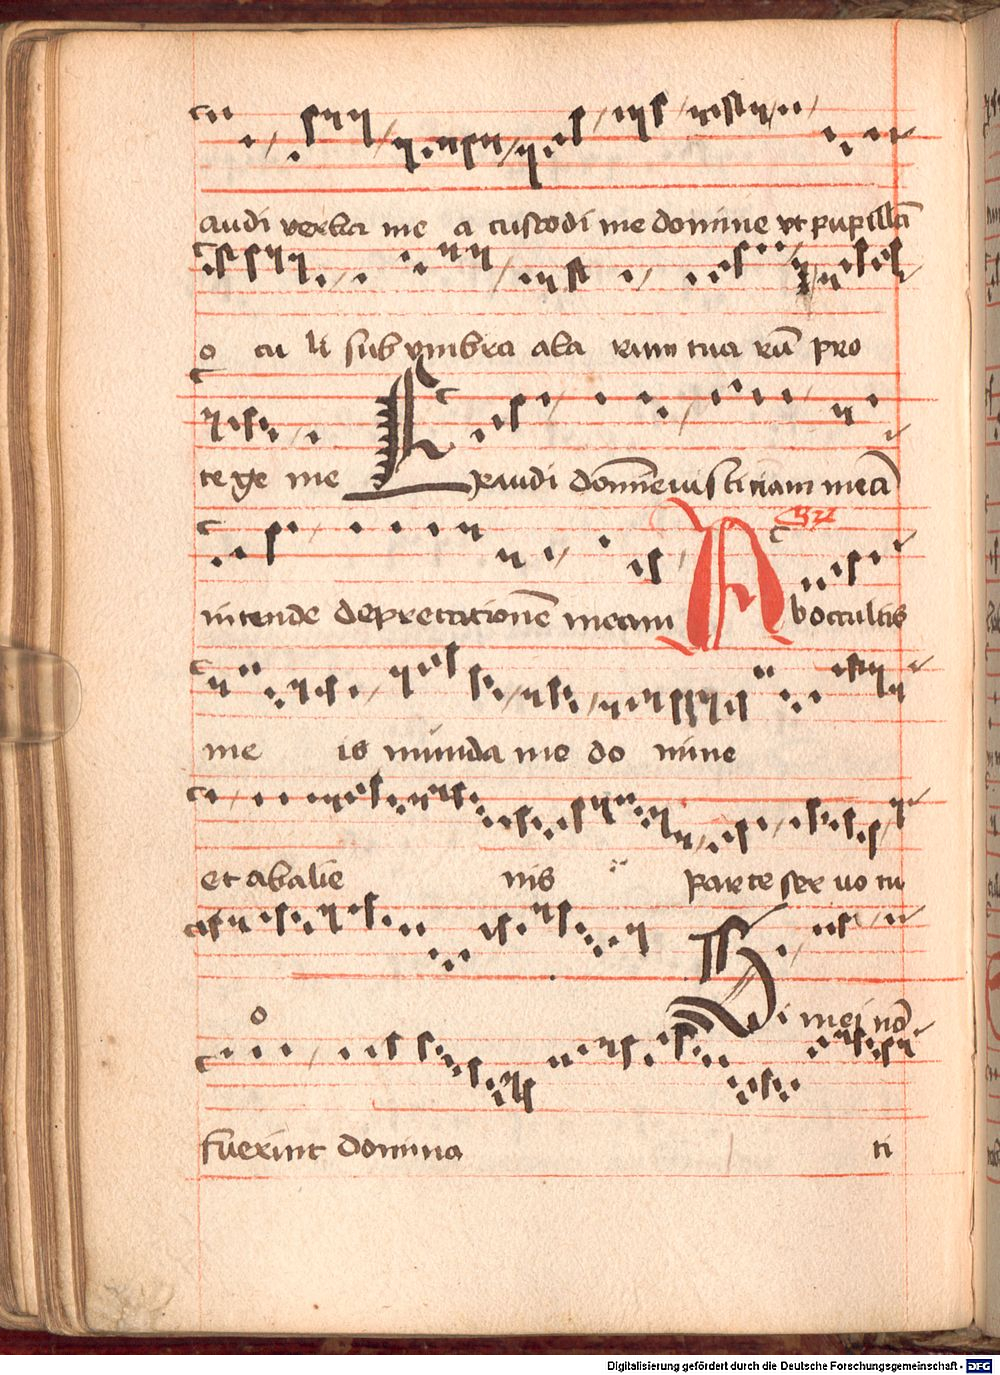 audi verba me a custodi me domine vt pupillā
o cu li sub vmbra ala rum tua rū pro
te ge me Exaudi dom̄e iusticiam meā
intende deprecationē meam Ab occultis
me is munda me do mine
et ab alie nis parce ser uo tu
o Si mei nō
fuerint domina ti
Digitalisierung gefördert durch die Deutsche Forschungsgemeinschaft - DFG